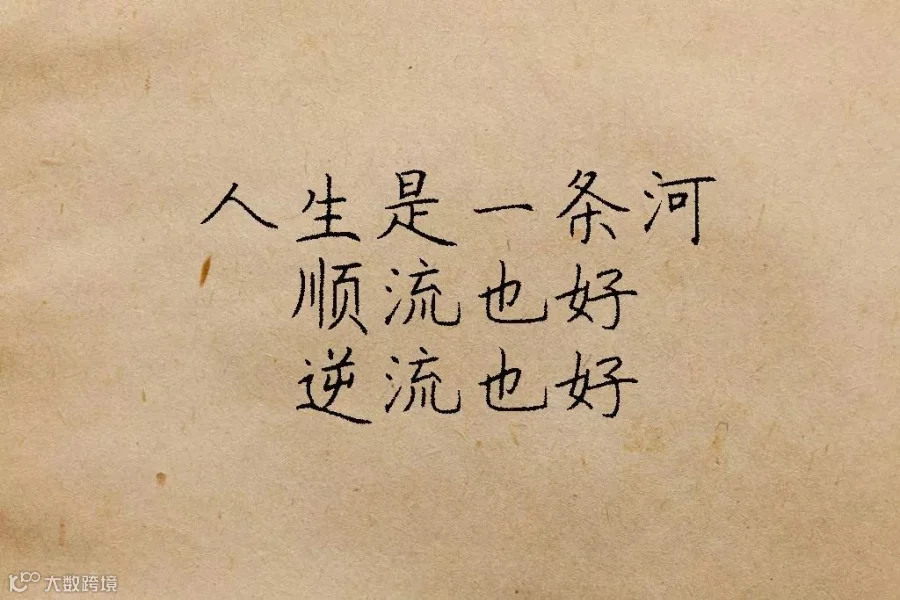 人生是一条河
顺流也好
逆流也好
大数跨境